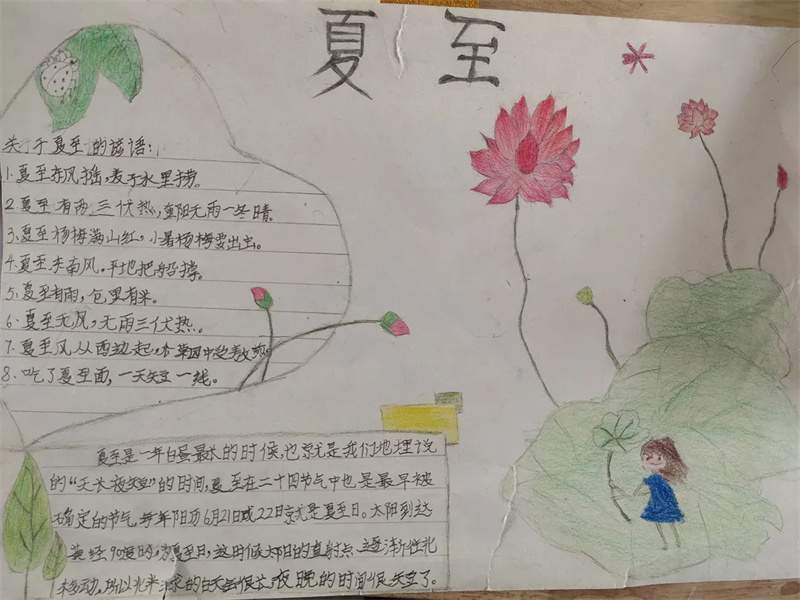 夏至
关于夏至的谚语:
1.夏至东风摇,麦子水里捞。
2夏至有雨三伏热,重阳无雨一冬晴
3.夏至杨梅满山红,小暑杨梅要出虫。
4.夏至未南风.平地把船撑。
5.夏至有雨,仓里有米。
6.夏至无风,无雨三伏热.
7.夏至风从西边起,菜园中
8.吃了夏至面,一天短一线。
夏至是一年白昼最长的时候,也就是我们地理说
的“天长夜短”的时间,夏至在二十四节气中也是最早被
确定的节气.每年阳历6月21日或22日就是夏至日。太阳到达
黄经90度时,为夏至日,这时候太阳的直射点逐渐往北
移动.所以北半球的白天会很长,夜晚的时间很短了。